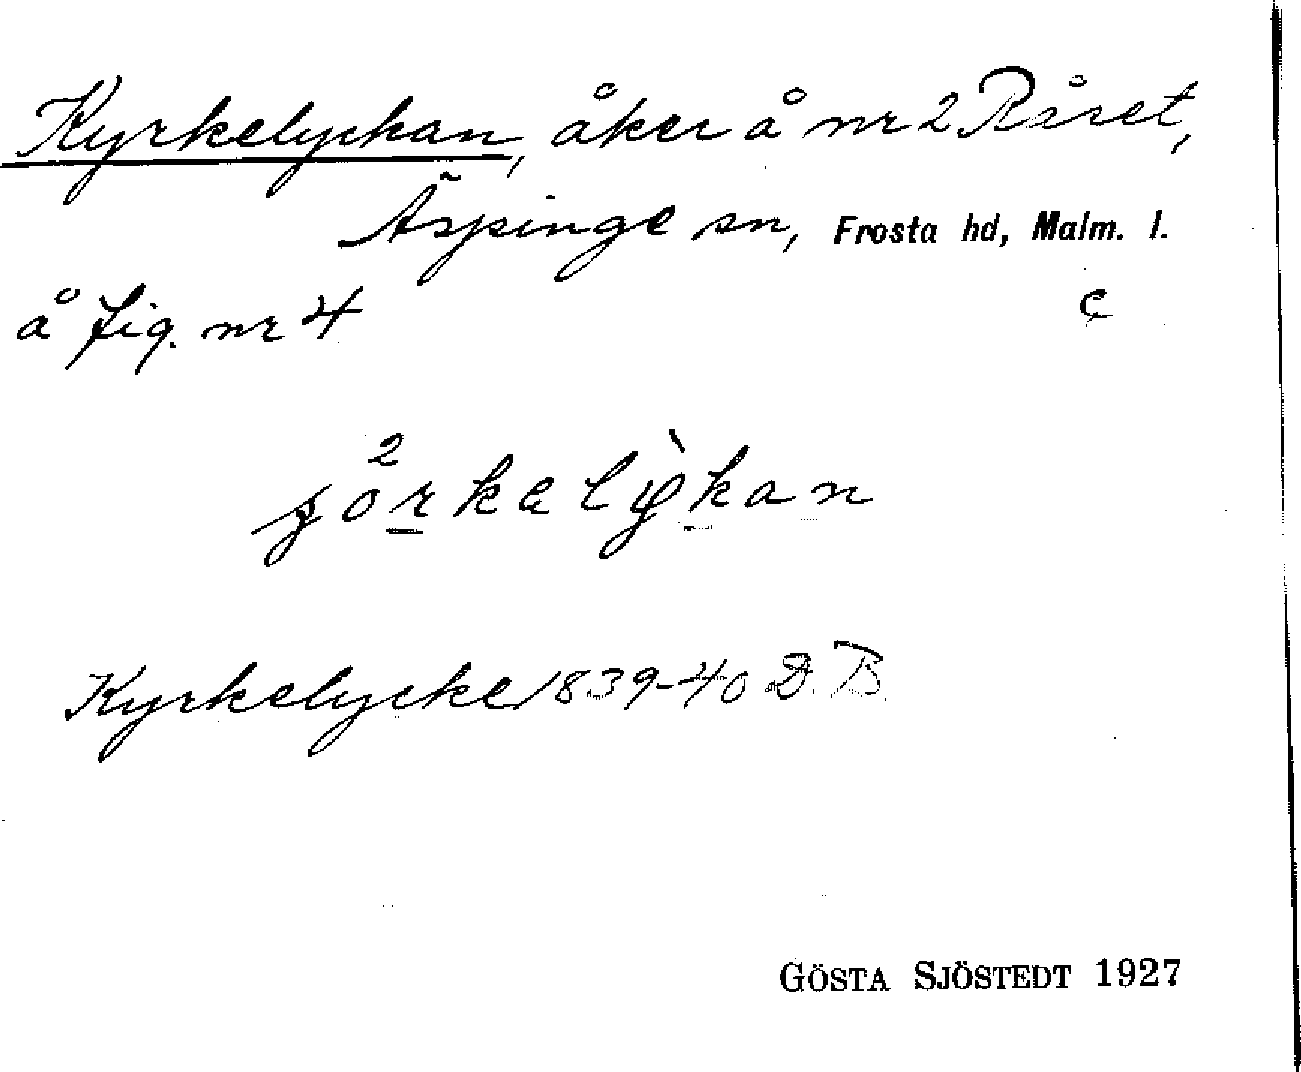 Kyrkelyckan, åker å nr 2 Råret,
Äspinge sn, Frosta hd, Malm. l.
å fig. nr 4 c
Kyrkelycke 1839-40 D.B.
GÖSTA SJÖSTEDT 1927